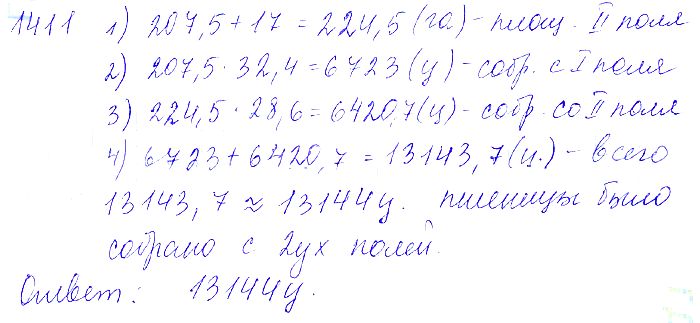 1411 1) 207,5 + 17 = 224,5 (га) - площ. II поля
2) 207,5 · 32,4 = 6723 (ц) - собр. с I поля
3) 224,5 · 28,6 = 6420,7 (ц) - собр. со II поля
4) 6723 + 6420,7 = 13143,7 (ц.) - всего
13143,7 ≈ 13144ц. пшеницы было
собрано с 2ух полей.
Ответ: 13144ц.